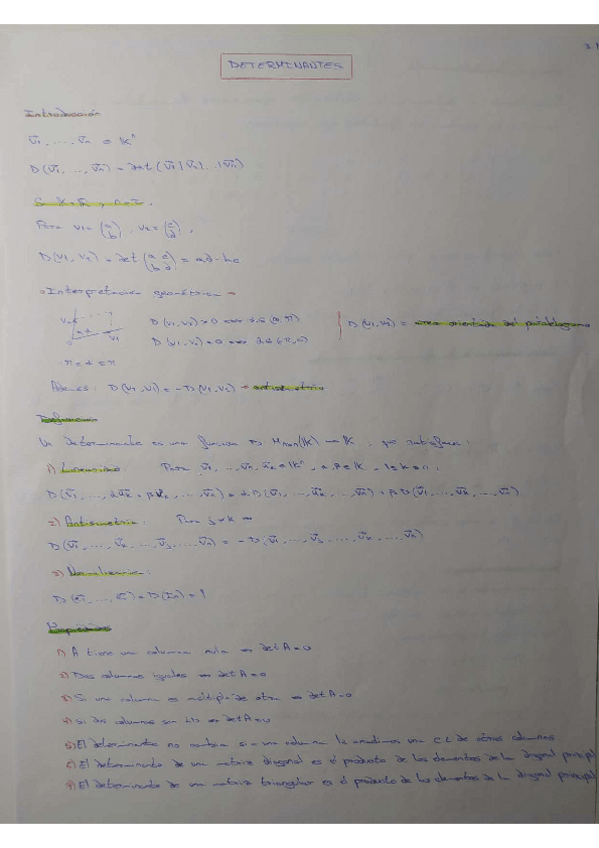 3.1
DETERMINANTES
Introducción
v̄1, ..., v̄n ∈ Kⁿ
D(v̄1, ..., v̄n) = det(v̄1|v̄2|...|v̄n)
Si K=R, n=2.
Para v1=(a b), v2=(c d),
D(v1, v2) = det(a c b d) = ad-bc
Interpretación geométrica
v2 α v1
D(v1, v2) > 0
D(v1, v2) < 0
D(v1, v2) = área orientada del paralelogramo
Además: D(v2, v1) = -D(v1, v2) antisimetría
Definición
Un determinante es una función D: Mnxn(K) → K, que satisface:
1) Linealidad: Para
D(v̄1, ..., αūk + βv̄k, ..., v̄n) = αD(v̄1, ..., ūk, ..., v̄n) + βD(v̄1, ..., v̄k, ..., v̄n)
2) Antisimetría: Para j≠k
D(v̄1, ..., v̄k, ..., v̄j, ..., v̄n) = -D(v̄1, ..., v̄j, ..., v̄k, ..., v̄n)
3) Normalización:
D(ē1, ..., ēn) = D(In) = 1
Propiedades
1) A tiene una columna nula ⇒ det A = 0
2) Dos columnas iguales ⇒ det A = 0
3) Si una columna es múltiplo de otra ⇒ det A = 0
4) Si dos columnas son LD ⇒ det A = 0
5) El determinante no cambia si a una columna le añadimos una C.L de otras columnas
6) El determinante de una matriz diagonal es el producto de los elementos de la diagonal principal
7) El determinante de una matriz triangular es el producto de los elementos de la diagonal principal